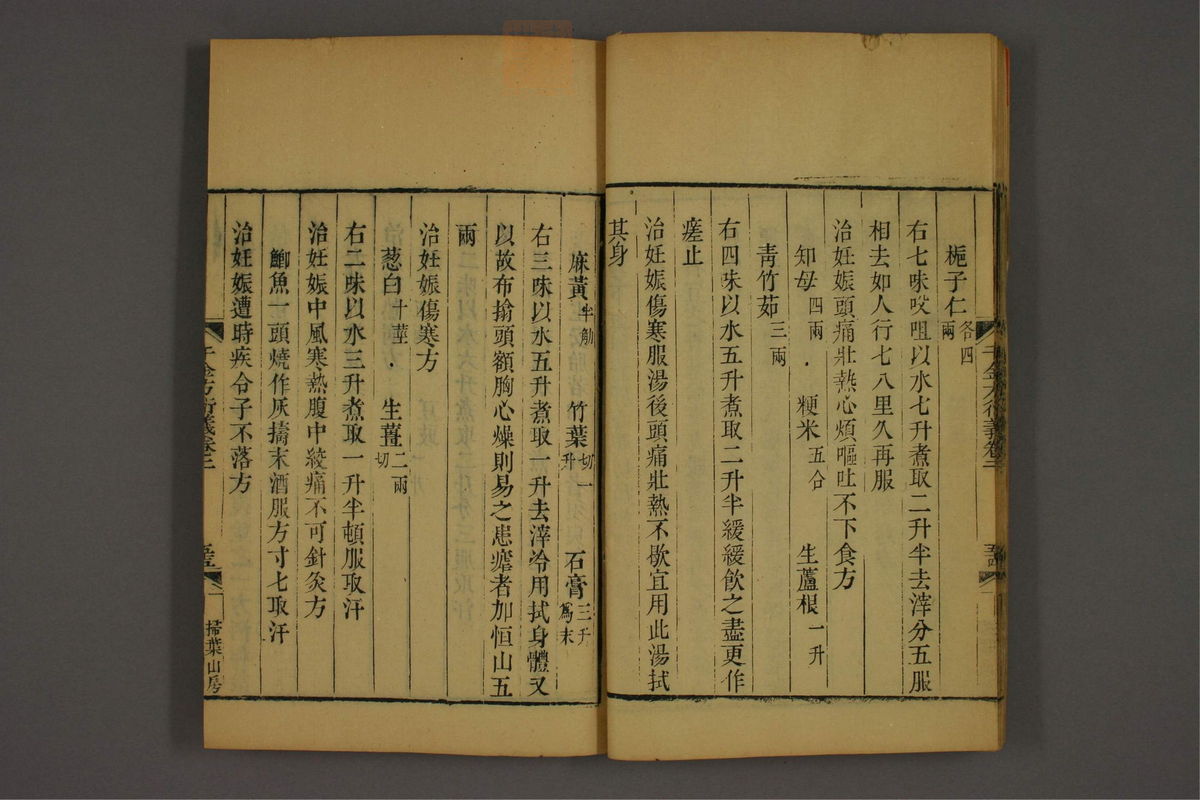 梔子仁各四兩
右七味㕮咀以水七升煮取二升半去滓分五服
相去如人行七八里久再服
治妊娠頭痛壯熱心煩嘔吐不下食方
知母四兩 粳米五合 生蘆根一升
青竹茹三兩
右四味以水五升煮取二升半緩緩飲之盡更作
瘥止
治妊娠傷寒服湯後頭痛壯熱不歇宜用此湯拭
其身
麻黃半觔 竹葉切一升 石膏三升爲末
右三味以水五升煮取一升去滓冷用拭身體又
以故布搨頭額胸心燥則易之患瘧者加恒山五
兩
治妊娠傷寒方
葱白十莖 生薑二兩切
右二味以水三升煮取一升半頓服取汗
治妊娠中風寒熱腹中絞痛不可針灸方
鯽魚一頭燒作灰擣末酒服方寸匕取汗
治妊娠遭時疾令子不落方
千金方衍義卷二
掃葉山房